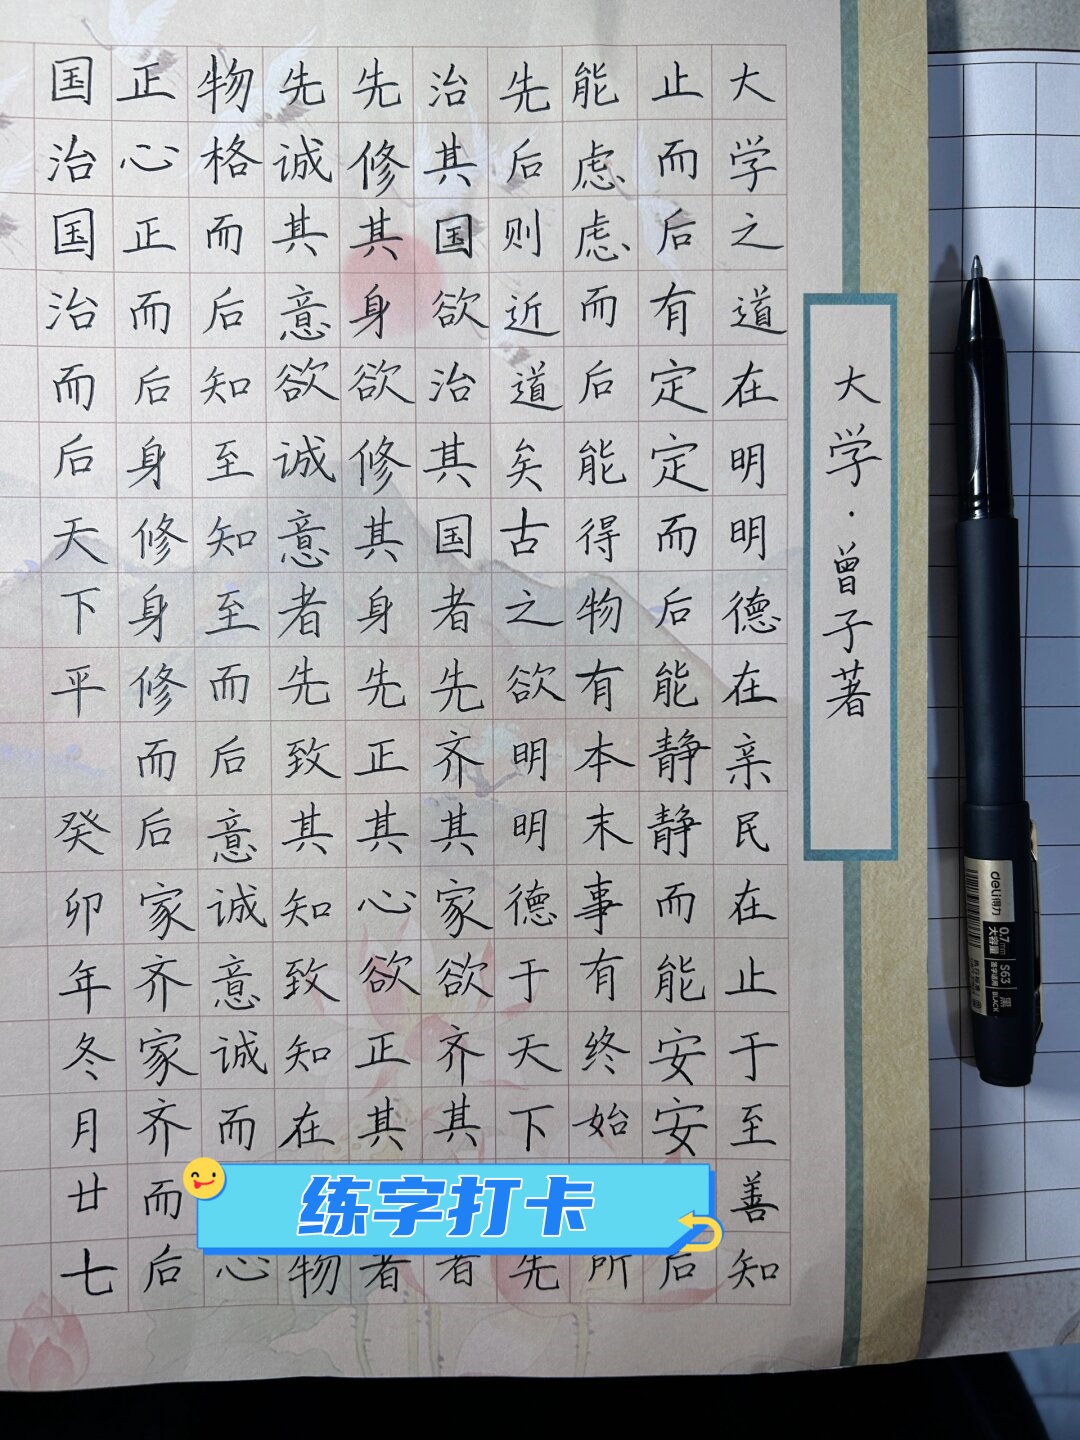 大学·曾子著
大学之道在明明德在亲民在止于至善知
止而后有定定而后能静静而能安安后
能虑虑而后能得物有本末事有终始所
先后则近道矣古之欲明明德于天下先
治其国欲治其国者先齐其家欲齐其者
先修其身欲修其身先正其心欲正其者
先诚其意欲诚意者先致其知致知在物
物格而后知至知至而后意诚意诚而心
正心正而后身修身修而后家齐家齐而后
国治国治而后天下平 癸卯年冬月廿七
练字打卡
deli得力
0.7mm
大容量
S63
黑
BLACK